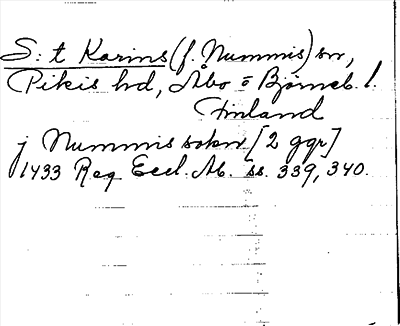 S:t Karins (f. Nummis) sn,
Pikis hd, Åbo o Björneb. l.
Finland
j Nummis sokn [2 ggr]
1433 Reg Eccl. Ab. ss. 339, 340.